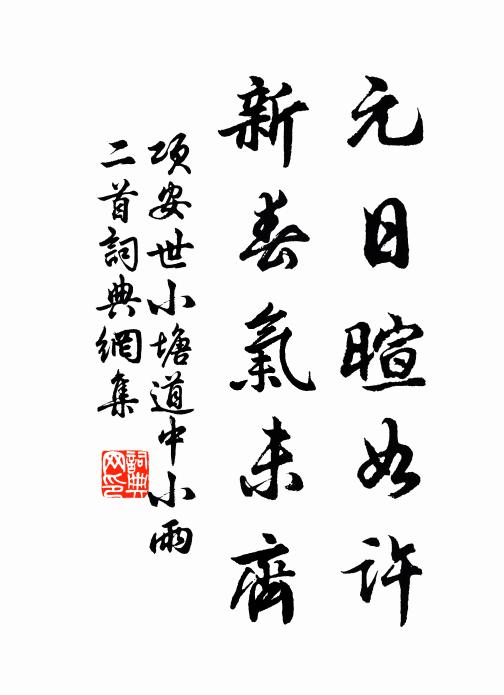 元日暄如許
新春氣未齊
項安世小塘道中小雨
二首詞典網集
詞典
网印